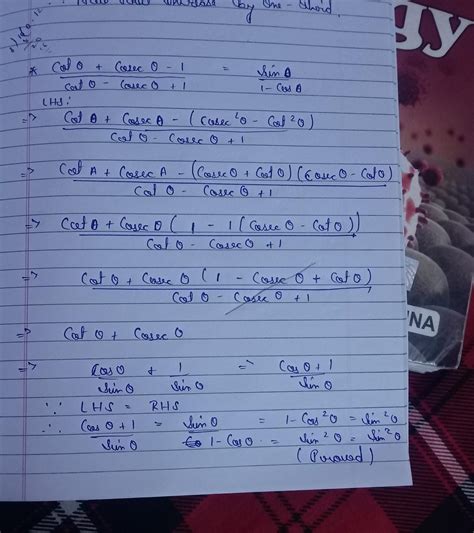 one-third.
* Cot θ + Cosec θ - 1 / Cot θ - Cosec θ + 1 = Sin θ / 1 - Cos θ
LHS:
=> Cot θ + Cosec θ - (Cosec²θ - Cot²θ) / Cot θ - Cosec θ + 1
=> Cot θ + Cosec θ - (Cosec θ + Cot θ) (Cosec θ - Cot θ) / Cot θ - Cosec θ + 1
=> Cot θ + Cosec θ ( 1 - 1 (Cosec θ - Cot θ)) / Cot θ - Cosec θ + 1
=> Cot θ + Cosec θ (1 - Cosec θ + Cot θ) / Cot θ - Cosec θ + 1
=> Cot θ + Cosec θ
=> Cos θ / Sin θ + 1 / Sin θ => Cos θ + 1 / Sin θ
∵ LHS = RHS
∴ Cos θ + 1 / Sin θ = Sin θ / 1 - Cos θ = 1 - Cos²θ = Sin²θ
= Sin²θ = Sin²θ
(Prooved)
gy
INA